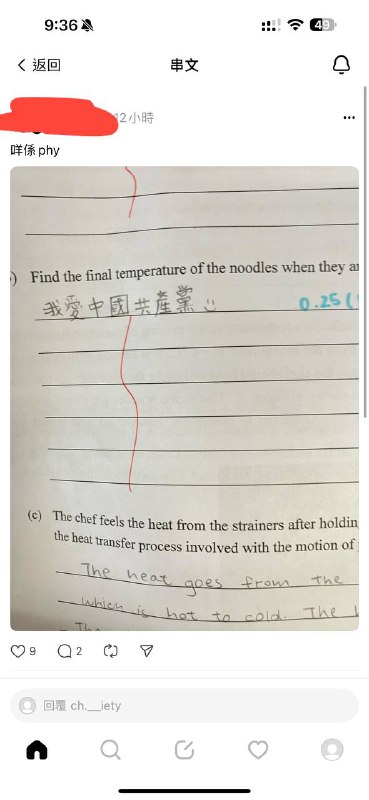 9:36
49
返回
串文
12小時
咩係 phy
) Find the final temperature of the noodles when they
我愛中國共產黨
0.25 (
(c) The chef feels the heat from the strainers after
the heat transfer process involved with the motion of
The heat goes from the
which is hot to cold. The
9
2
回覆 ch.__iety